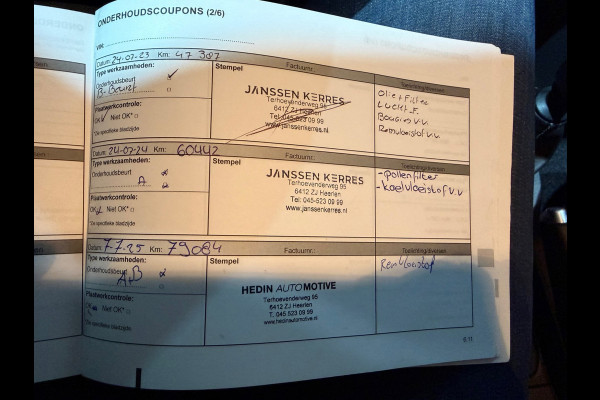 ONDERHOUDSCOUPONS (2/6)
VIN:
Datum: 24-07-23 Km: 47 387 Factuurnr.:
Type werkzaamheden:
Onderhoudsbeurt ✓
B-Beurt
Plaatwerkcontrole:
OK ✓ Niet OK*
*Zie specifieke bladzijde
Stempel
JANSSEN KERRES
Terhoevenderweg 95
6412 ZJ Heerlen
Tel: 045-523 09 99
www.janssenkerres.nl
Toelichting/diversen:
Olie+Filter
Lucht F.
Bougies v.v.
Remvloeistof v.v.
Datum: 24-07-24 Km: 60442
Type werkzaamheden:
Onderhoudsbeurt
A
Plaatwerkcontrole:
OK Niet OK*
*Zie specifieke bladzijde
Stempel
JANSSEN KERRES
Terhoevenderweg 95
6412 ZJ Heerlen
Tel: 045-523 09 99
www.janssenkerres.nl
Toelichting/diversen:
-pollenfilter
-koelvloeistof v.v
Datum: 7-7-25 Km: 79084 Factuurnr.:
Type werkzaamheden:
Onderhoudsbeurt
A+B
Plaatwerkcontrole:
OK Niet OK*
*Zie specifieke bladzijde
Stempel
HEDIN AUTOMOTIVE
Terhoevenderweg 95
6412 ZJ Heerlen
T. 045 523 09 99
www.hedinautomotive.nl
Toelichting/diversen:
Remvloeistof